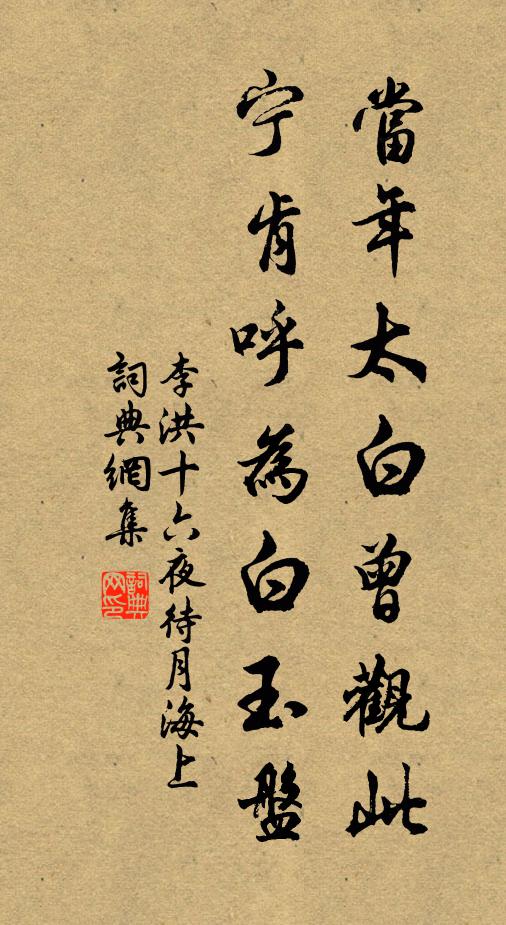 當年太白曾觀此
宁肯呼為白玉盤
李洪十六夜待月海上
詞典網集
詞典网印